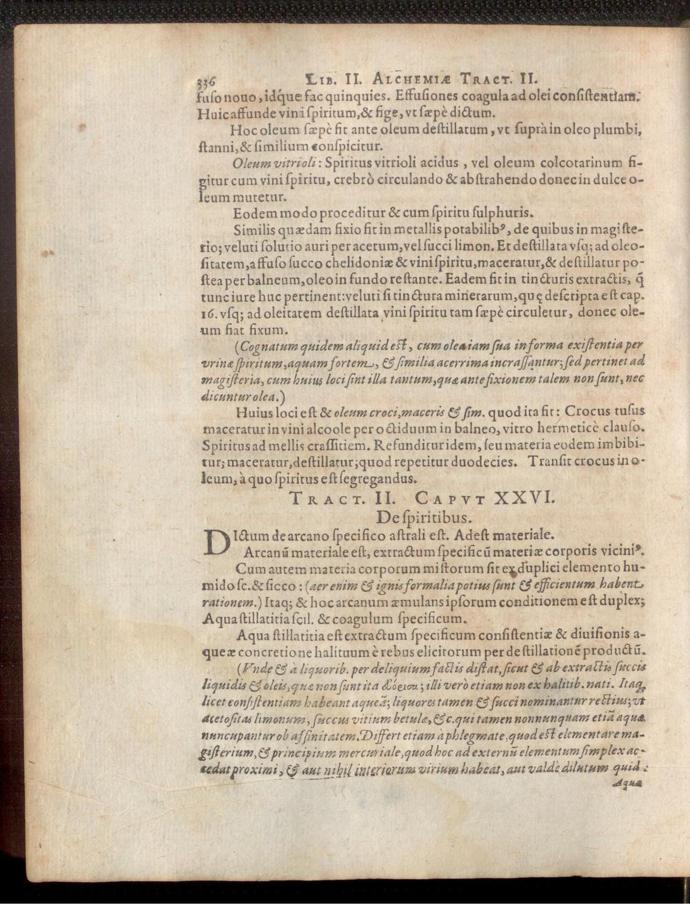 336 LIB. II. ALCHEMIÆ TRACT. II.
fuſo nouo, idq́ue fac quinquies. Effuſiones coagula ad olei conſiſtentiam.
Huic affunde vini ſpiritum, & fige, vt ſæpè dictum.
Hoc oleum ſæpè fit ante oleum deſtillatum, vt ſuprà in oleo plumbi,
ſtanni, & ſimilium conſpicitur.
Oleum vitrioli: Spiritus vitrioli acidus, vel oleum colcotarinum fi-
gitur cum vini ſpiritu, crebrò circulando & abſtrahendo donec in dulce o-
leum mutetur.
Eodem modo proceditur & cum ſpiritu ſulphuris.
Similis quædam fixio fit in metallis potabilibꝰ, de quibus in magiſte-
rio; veluti ſolutio auri per acetum, vel ſucci limon. Et deſtillata vſq; ad oleo-
ſitatem, affuſo ſucco chelidoniæ & vini ſpiritu, maceratur, & deſtillatur po-
ſtea per balneum, oleo in fundo reſtante. Eadem fit in tincturis extractis, q̃
tunc iure huc pertinent: veluti ſi tinctura minerarum, quę deſcripta eſt cap.
16. vſq; ad oleitatem deſtillata vini ſpiritu tam ſæpè circuletur, donec ole-
um fiat fixum.
(Cognatum quidem aliquid eſt, cum olea iam ſua in forma exiſtentia per
vrinæ ſpiritum, aquam fortem, & ſimilia acerrima incraſſantur; ſed pertinet ad
magiſteria, cum huius loci ſint illa tantum, quæ ante fixionem talem non ſunt, nec
dicuntur olea.)
Huius loci eſt & oleum croci, maceris & ſim. quod ita fit: Crocus tuſus
maceratur in vini alcoole per octiduum in balneo, vitro hermeticè clauſo.
Spiritus ad mellis craſſitiem. Refunditur idem, ſeu materia eodem imbibi-
tur; maceratur, deſtillatur; quod repetitur duodecies. Tranſit crocus in o-
leum, à quo ſpiritus eſt ſegregandus.
TRACT. II. CAPVT XXVI.
De ſpiritibus.
DIctum de arcano ſpecifico aſtrali eſt. Adeſt materiale.
Arcanũ materiale eſt, extractum ſpecificũ materiæ corporis viciniꝰ.
Cum autem materia corporum miſtorum ſit ex duplici elemento hu-
mido ſc. & ſicco: (aer enim & ignis formalia potius ſunt & efficientum habent
rationem.) Itaq; & hoc arcanum æmulans ipſorum conditionem eſt duplex;
Aqua ſtillatitia ſcil. & coagulum ſpecificum.
Aqua ſtillatitia eſt extractum ſpecificum conſiſtentiæ & diuiſionis a-
queæ concretione halituum è rebus elicitorum per deſtillationẽ productũ.
(Vnde & à liquorib. per deliquium factis diſtat, ſicut & ab extractis ſuccis
liquidis & oleis, quæ non ſunt ita; illi verò etiam non ex halitib. nati. Itaq́,
licet conſiſtentiam habeant aqueã; liquores tamen & ſucci nominantur rectius; vt
acetoſitas limonum, ſuccus vitium betulæ, &c. qui tamen nonnunquam etiã aquæ
nuncupantur ob affinitatem. Differt etiam à phlegmate, quod eſt elementare ma-
giſterium, & principium mercuriale, quod hoc ad externũ elementum ſimplex ac-
cedat proximi, & aut nihil interiorum virium habeat, aut valdè dilutum quid:
Aqua